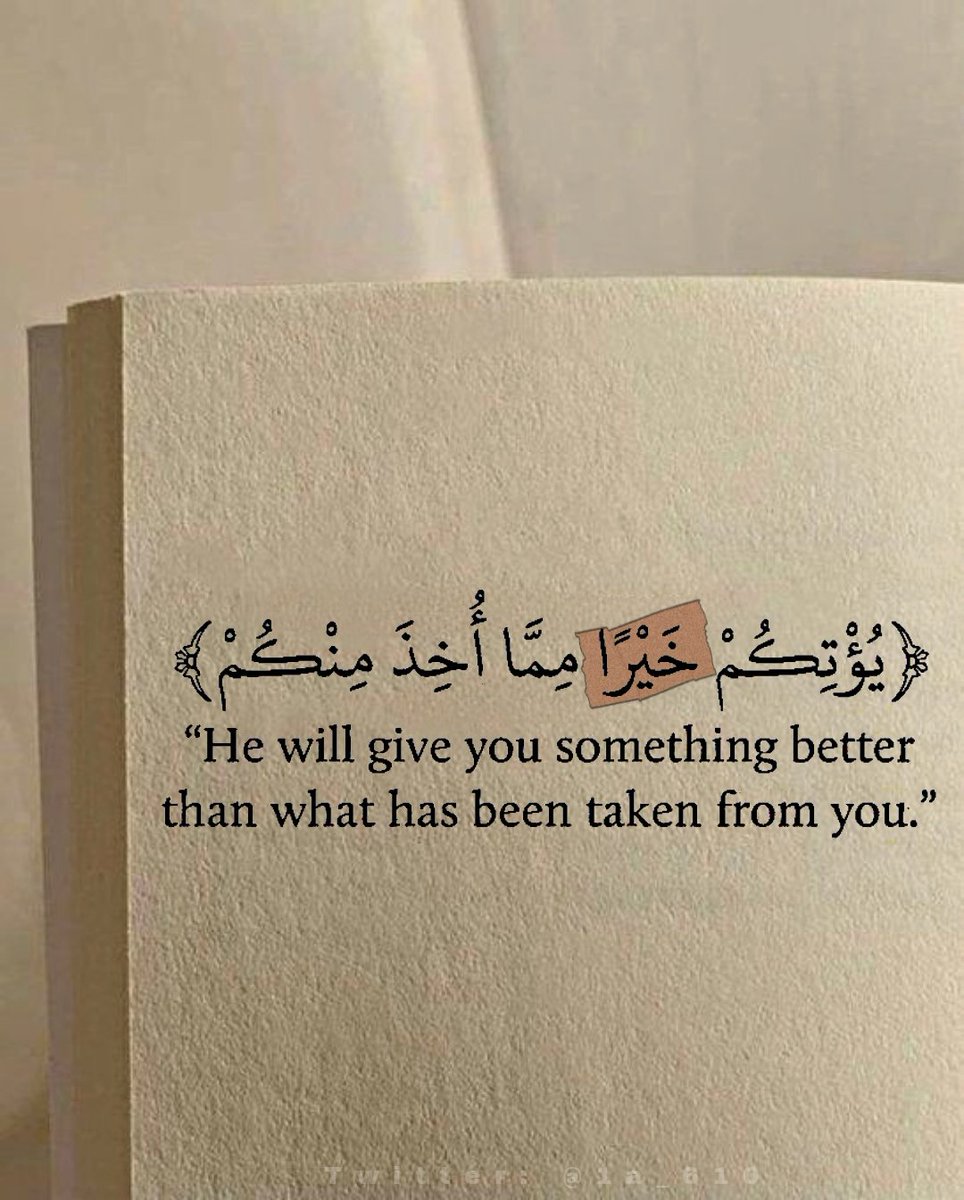 ﴿يُؤْتِكُمْ خَيْرًا مِمَّا أُخِذَ مِنْكُمْ﴾
“He will give you something better
than what has been taken from you.”
Twitter: @1a_610